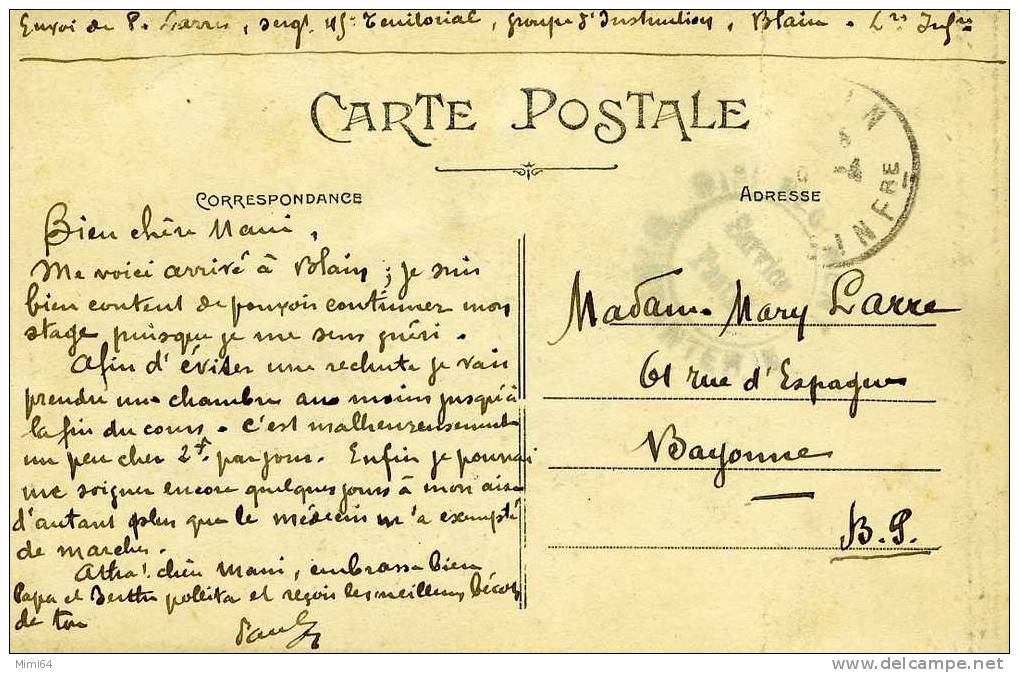 Envoi de P. Larre, sergt 45e Territorial, groupe d'Instruction, Blain. Lre Infre
CARTE POSTALE
CORRESPONDANCE
ADRESSE
Bien chère Mani,
Me voici arrivé à Blain; je suis
bien content de pouvoir continuer mon
stage puisque je me sens guéri.
Afin d'éviter une rechute je vais
prendre une chambre au moins jusqu'à
la fin du cours. C'est malheureusement
un peu cher 2f. par jour. Enfin je pourrai
me soigner encore quelques jours à mon aise
d'autant plus que le médecin m'a exempté
de marches.
chère Mani, embrasse bien
Papa et Berthe et reçois les meilleurs bécots
de ton
Paul
Madame Mary Larre
61 rue d'Espagne
Bayonne
B.P.
INFRE
Service
Mimi64
delcampe.net